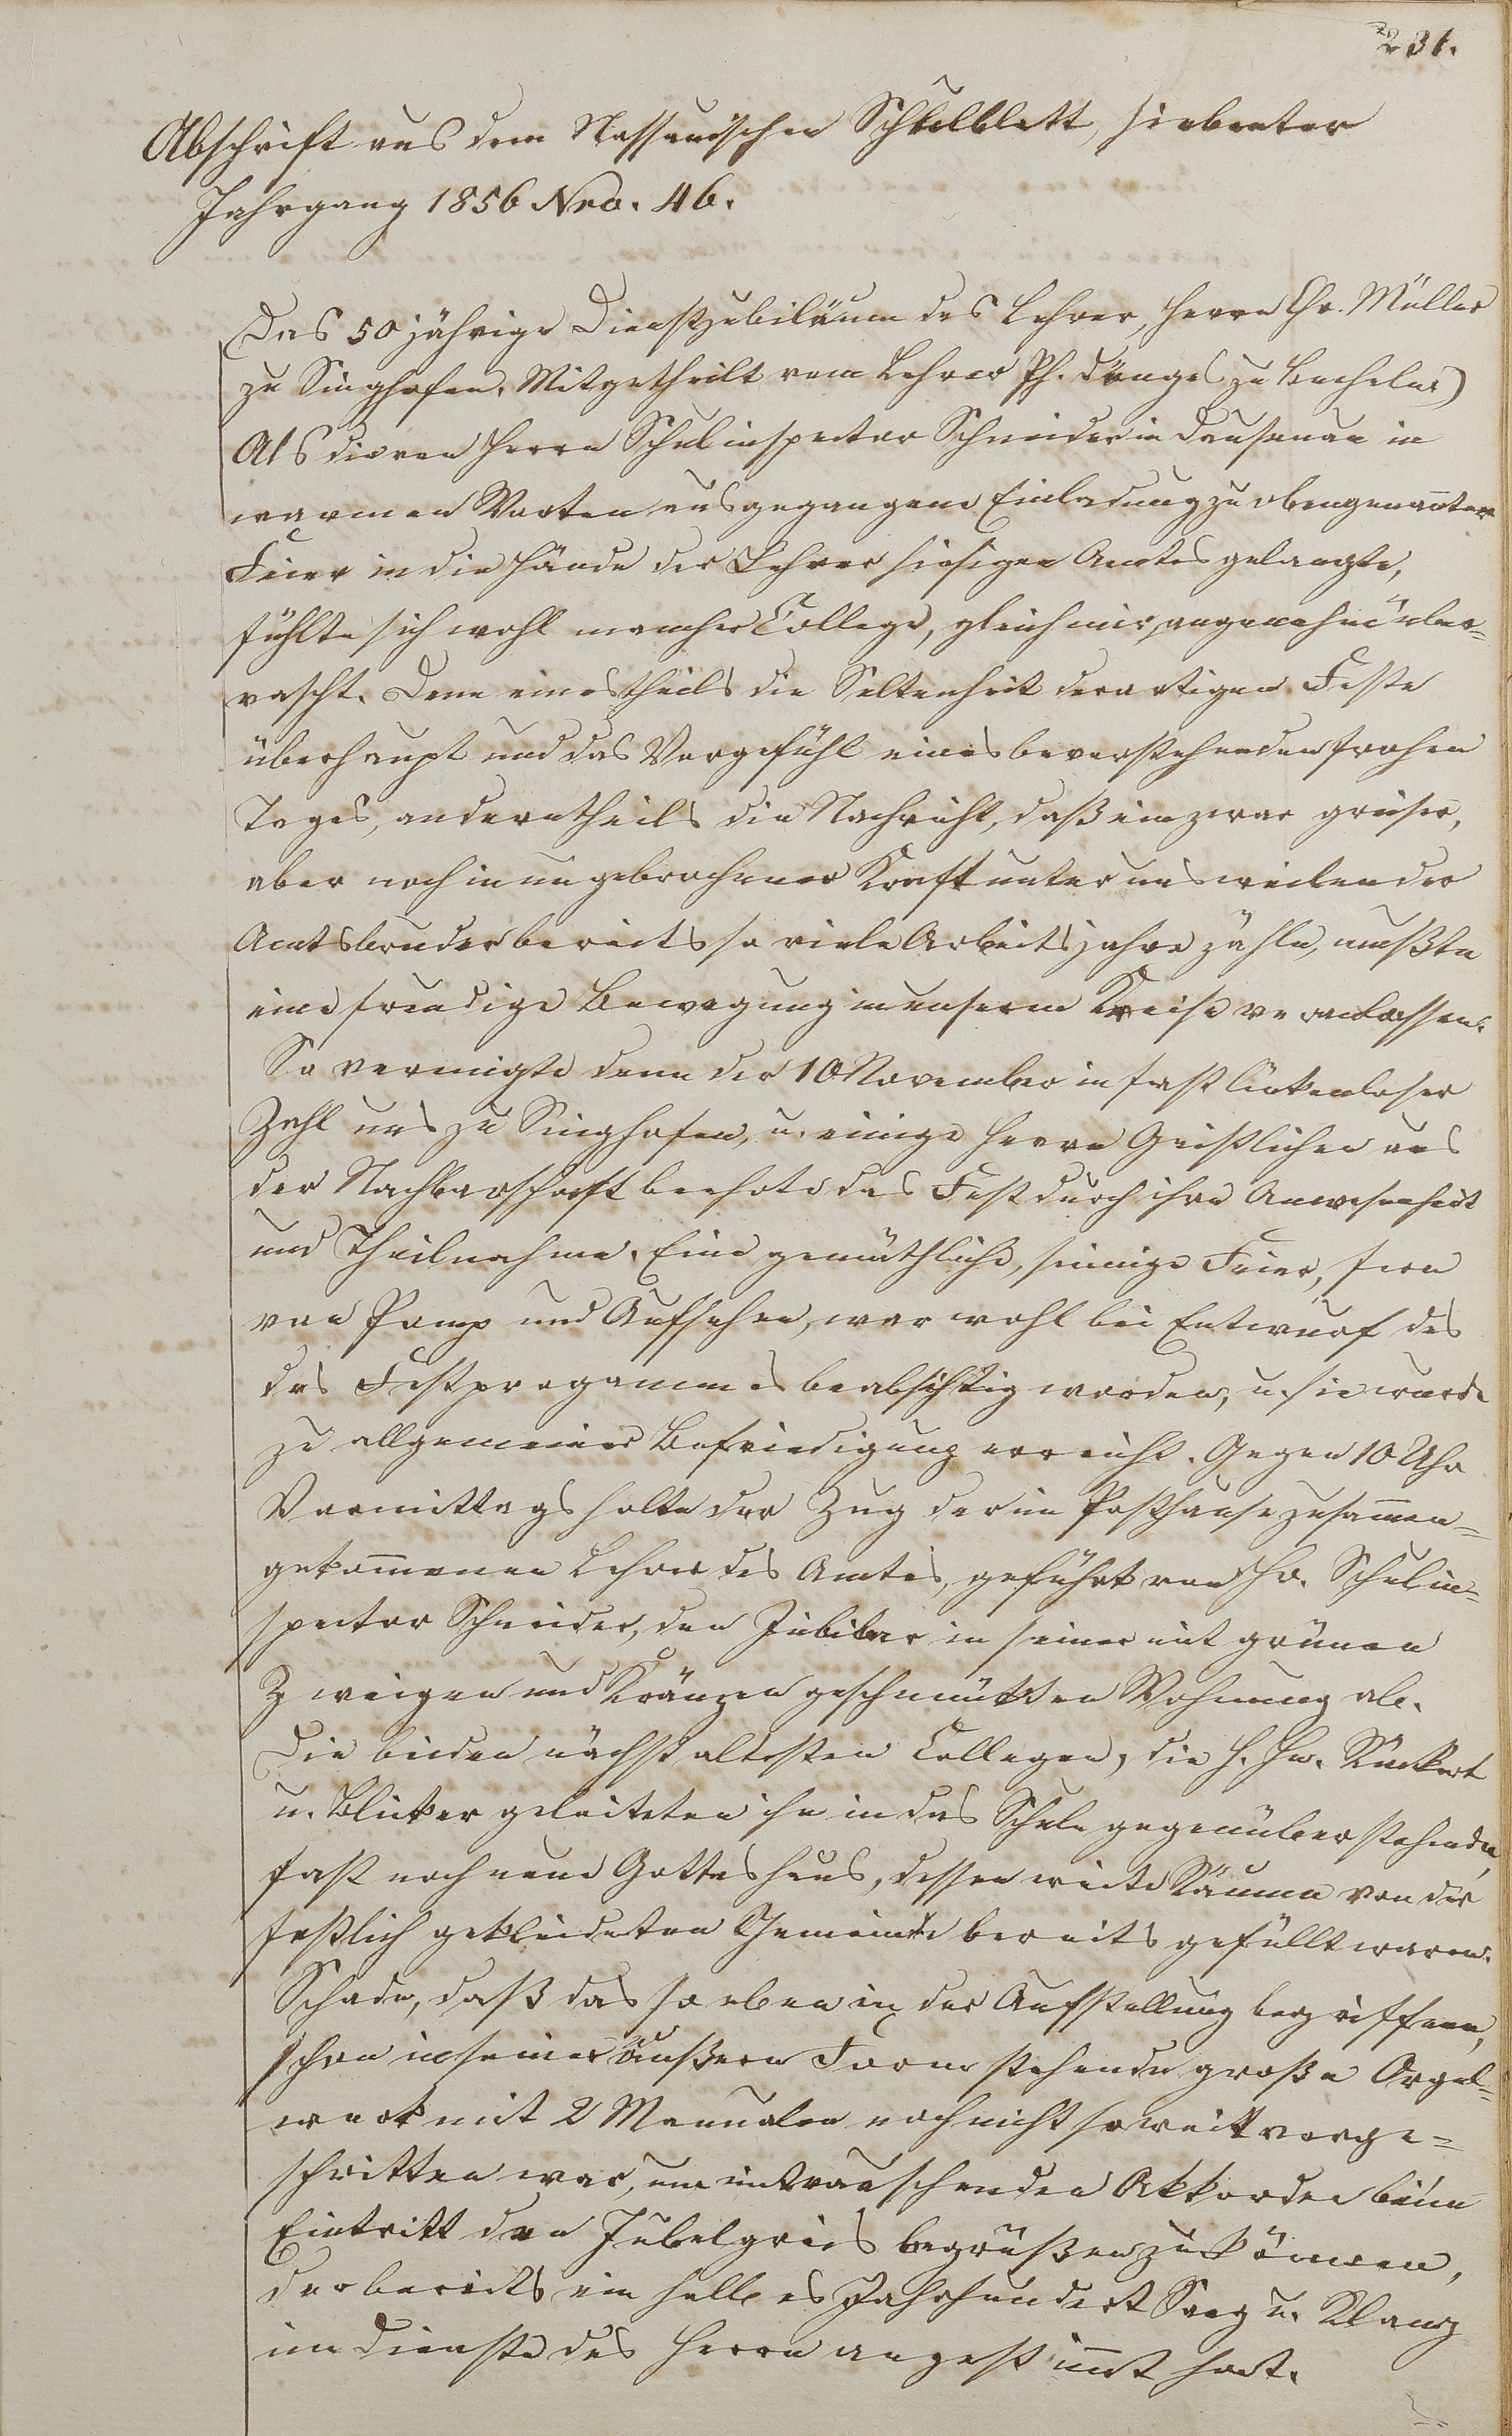 231.
Abschrift aus dem Nassauischen Schulblatt, siebenter
Jahrgang 1856 Nro. 46.
(Das 50 jährige Dienstjubiläum des Lehrer, Herrn Chr. Müller
zu Singhofen. Mitgetheilt vom Lehrer Ph. Dönges zu Becheln)
Als die von Herrn Schulinspector Schneider in Dausenau in
warmen Worten ausgegangene Einladung zu obengenannter
Feier in die Hände der Lehrer hiesigen Amtes gelangte,
fühlte sich wohl mancher College, gleich mir, angenehm über-
rascht. Denn einestheils die Seltenheit derartigen Feste
überhaupt und das Vorgefühl eines bevorstehenden frohen
Tages, anderntheils die Nachricht, daß ein zwar greiser,
aber noch in ungebrochener Kraft unter uns weilender
Amtsbruder bereits so viele Arbeitsjahre zähle, mußte
eine freudige Bewegung in unserm Kreise veranlassen.
So vereinigte denn der 10 November in fast lückenloser
Zahl uns zu Singhofen, u. einige Herrn Geistlichen aus
der Nachbarschaft beehrte das Fest durch ihre Anwesenheit
und Theilnahme. Eine gemüthliche, sinnige Feier, fern
von Pomp und Aufsehen, war wohl bei Entwurf des
des Festprogammes beabsichtig worden, u. sie wurde
zu allgemeiner Befriedigung erreicht. Gegen 10 Uhr
Vormittags holte der Zug der im Posthause zusammen-
gekommenen Lehrer des Amtes, geführt von Hr. Schulin-
spector Schneider, den Jubilar in seiner mit grünen
Zweigen und Kränzen geschmückten Wohnung ab.
Die beiden nächst altesten Collegen, die H. Hr. Rückert
u. Blicker geleiteten ihn in das Schule gegenüberstehende,
fast noch neue Gotteshaus, dessen weite Räume von der
festlich gekleideten Gemeinde bereits gefüllt waren.
Schade, daß das so eben in der Aufstellung begriffene,
schon in seiner äußern Form stehende große Orgel-
werk mit 2 Manualen noch nicht so weit vorge-
schritten war, um mit rauschenden Akkorden beim
Eintritt den Jubelgreis begrüßen zu können,
der bereits ein halbes Jahrhundert Sang u. Klang
im Dienste des Herrn angestimmt hat.